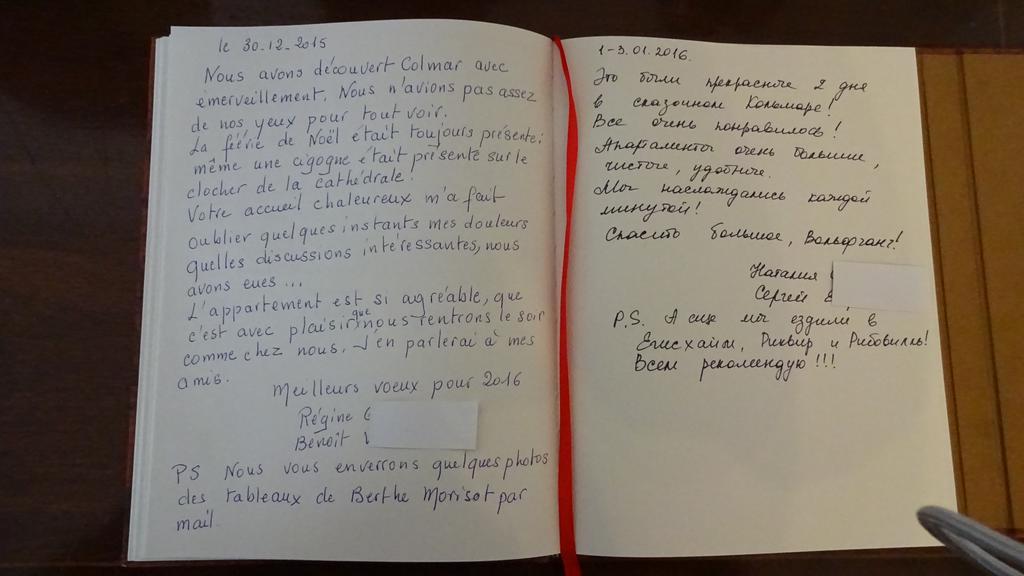 le 30-12-2015
Nous avons découvert Colmar avec
émerveillement. Nous n'avions pas assez
de nos yeux pour tout voir.
La féérie de Noël était toujours présente:
même une cigogne était présente sur le
clocher de la cathédrale!
Votre accueil chaleureux m'a fait
oublier quelques instants mes douleurs
quelles discussions intéressantes, nous
avons eues...
L'appartement est si agréable, que
c'est avec plaisir que nous rentrons le soir
comme chez nous. J'en parlerai à mes
amis.
Meilleurs voeux pour 2016
Régine
Benoît
PS Nous vous enverrons quelques photos
des tableaux de Berthe Morisot par
mail.
1-3.01.2016.
Это были прекрасные 2 дня
в сказочном Кольмаре!
Все очень понравилось!
Апартаменты очень большие,
чистые, удобные.
Мы наслаждались каждой
минутой!
Спасибо большое, Вольфганг!
Наталия
Сергей
P.S. А еще мы ездили в
Егисхайм, Риквир и Рибовилль!
Всем рекомендую!!!